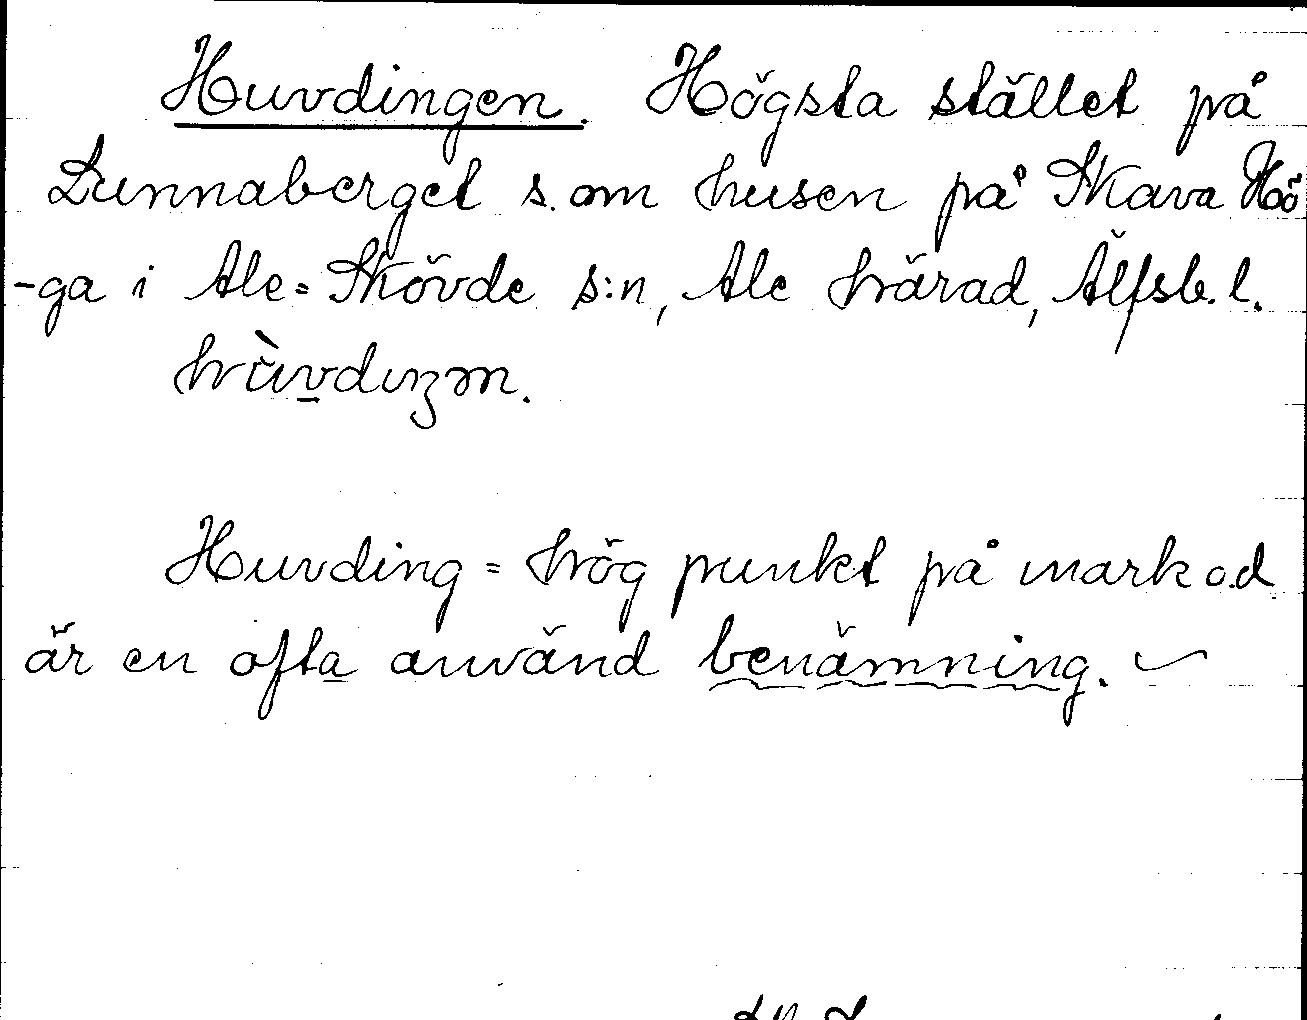 Huvdingen. Högsta stället på
Lunnaberget s. om husen på Skava Hö
-ga i Ale-Skövde s:n, Ale härad, Älfsb. l.
Huvding = hög punkt på mark o.d.
är en ofta använd benämning.